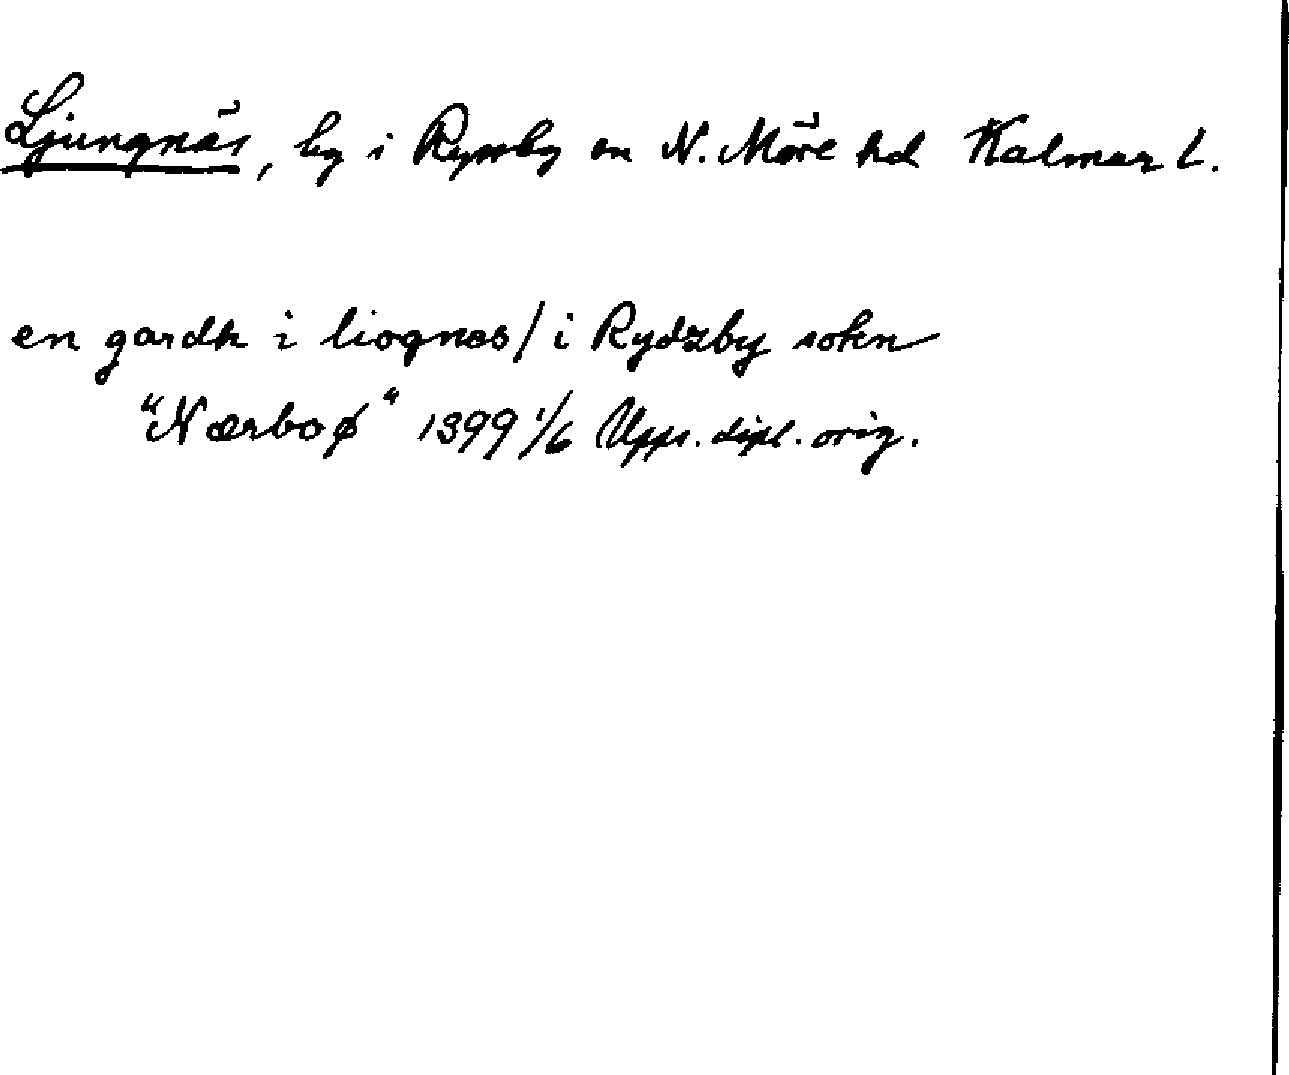 Ljungnäs, by i Ryssby sn N. Möre hd Kalmar l.
en gardh i liognæs/ i Rydzby sokn
"Nærboø" 1399 1/6 Upps. dipl. orig.